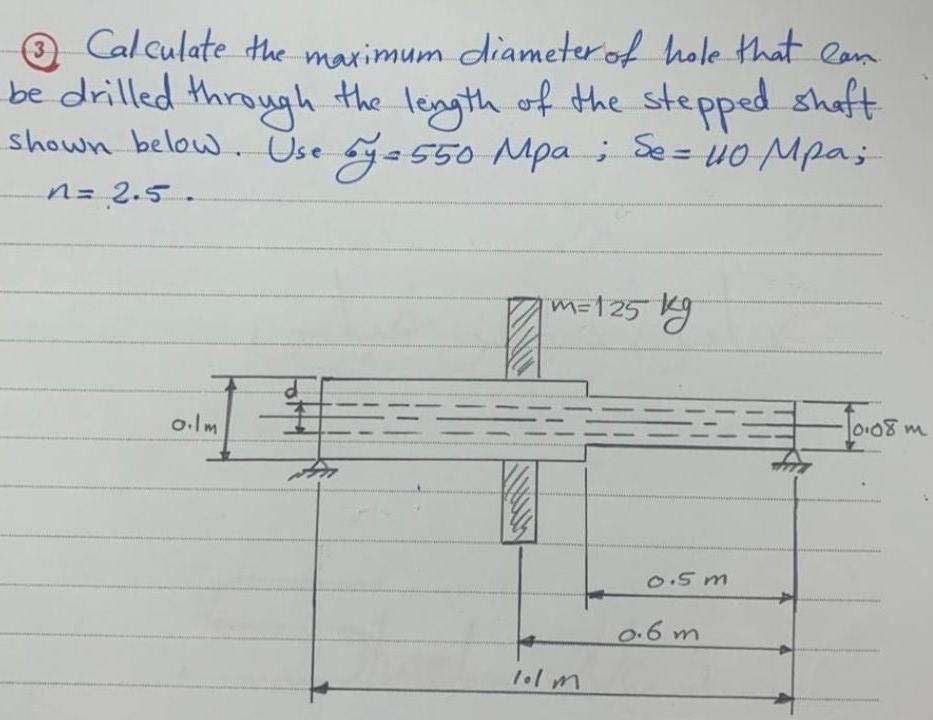 ③ Calculate the maximum diameter of hole that can
be drilled through the length of the stepped shaft
shown below. Use σy=550 Mpa ; Se= 110 Mpa;
n= 2.5 .
m=125 kg
d
0.1m
0.08 m
0.5 m
0.6 m
1.1 m